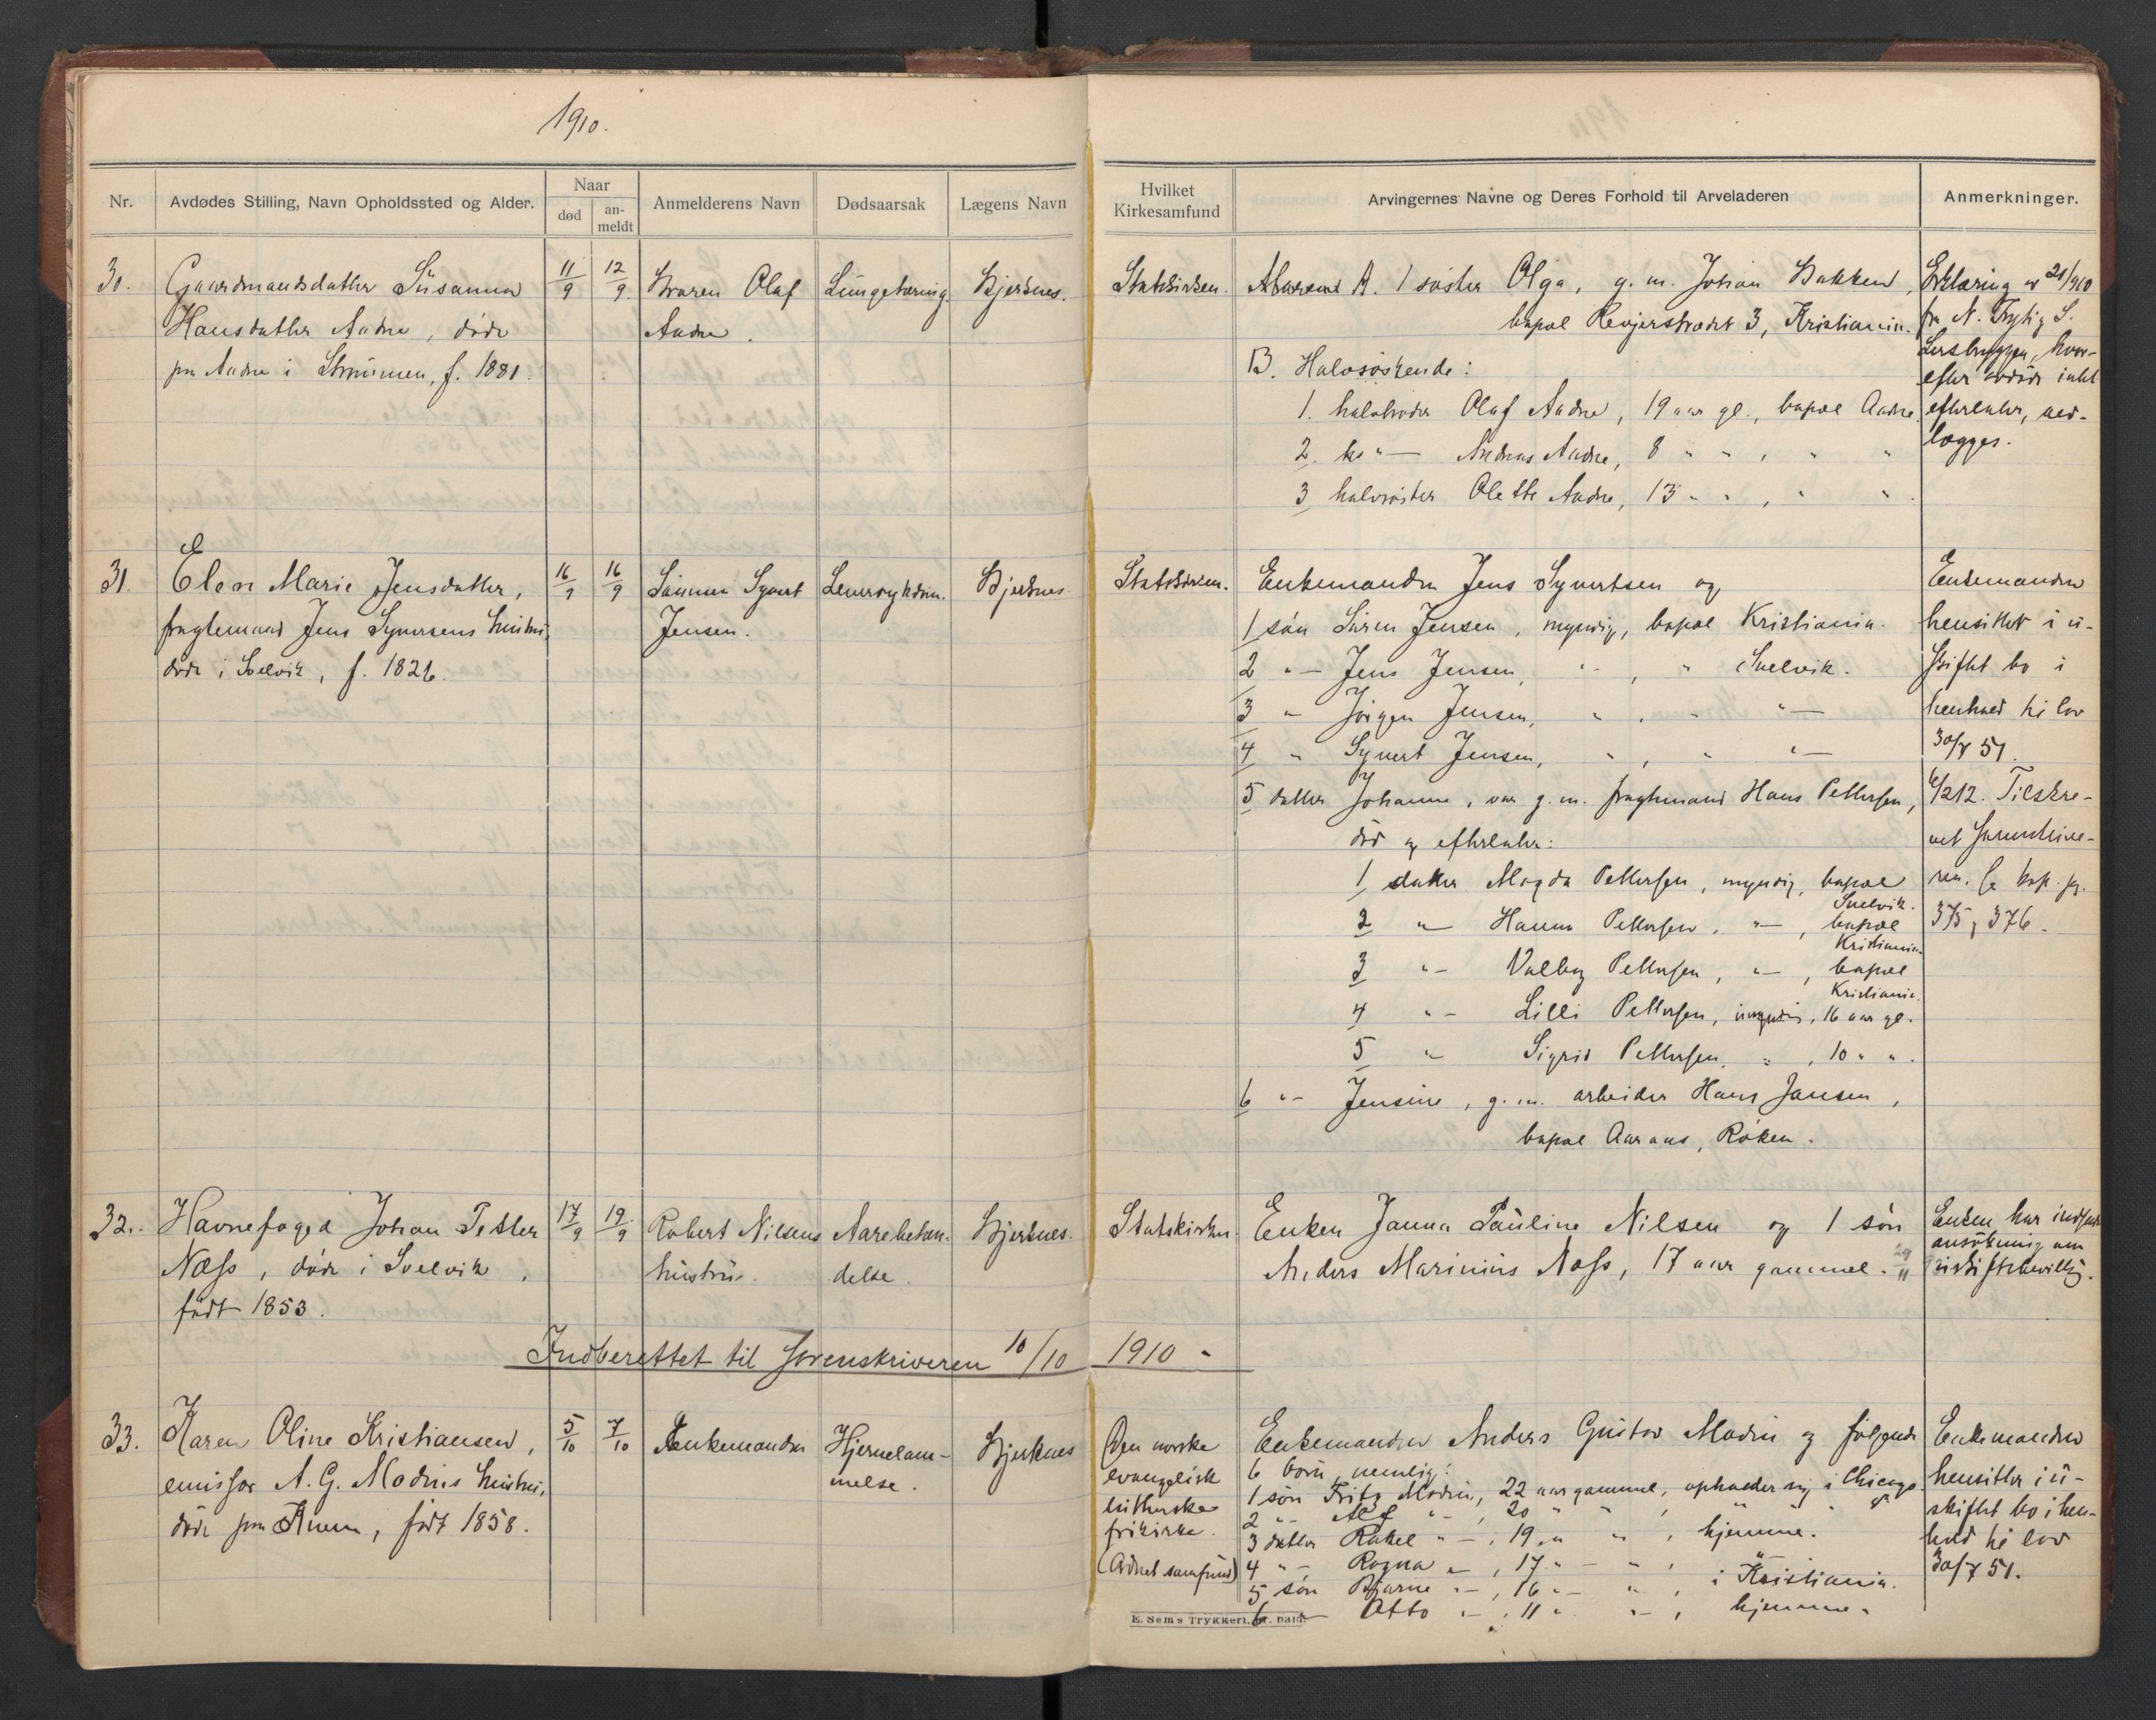 1910.
Nr.
Avdødes Stilling, Navn Opholdssted og Alder.
Naar
død
an-
meldt
Anmelderens Navn
Dødsaarsak
Lægens Navn
Hvilket
Kirkesamfund
Arvingernes Navne og Deres Forhold til Arveladeren
Anmerkninger.
30.
Gaardmandsdatter Susanna
Hansdatter Aadne, døde
paa Aadne i Strømmen, f. 1881.
11/9
12/9
Broren Olaf
Aadne.
Lungetæring.
Bjerknes.
Statskirken.
A. 1 søster Olga, g. m. Johan Bakken,
bopæl 3, Kristiania.
B. Halvsøskende:
1. halvbroder Olaf Aadne, 19 aar gl., bopæl Aadne
2. " — Andreas Aadne, 8 " " , " "
3 halvsøster Olette Aadne, 13 " " , " " .
Erklæring av 21/9 10
fra N.
hvor-
efter avdøde intet
efterlater, ved-
lægges.
31.
Elen Marie Jensdatter,
fragtemand Jens Syversens hustru,
døde i Svelvik, f. 1826.
16/9
16/9
Sønnen Syvert
Jensen.
Leversykdom.
Bjerknes.
Statskirken.
Enkemanden Jens Syvertsen og
1 søn Søren Jensen, myndig, bopæl Kristiania.
2 " — Jens Jensen, " — , " Svelvik.
3 " Jørgen Jensen, " , " " —
4 " Syvert Jensen, " , " " —
5 datter Johanne, var g. m. fragtemand Hans Pettersen,
død og efterlater:
1 datter Magda Pettersen, myndig, bopæl
Svelvik.
2 " — Hanna Pettersen, " — , bopæl
Kristiania.
3 " — Valborg Pettersen, " — , bopæl
Kristiania.
4 " — Lilli Pettersen, umyndig, 16 aar gl.
5 " Sigrid Pettersen, " , 10 " " .
6 " — Jensine, g. m. arbeider Hans Jansen,
bopæl Aaraas, Røken.
Enkemanden
hensitter i u-
skiftet bo i
henhold til lov
30/7 51.
6/2 12. Tilskre-
vet Sorenskrive-
ren. Se kop. pg.
375, 376.
32.
Havnefoged Johan Petter
Næss, døde i Svelvik,
født 1853.
17/9
19/9
Robert Nilsens
hustru.
Aarebetæn-
delse.
Bjerknes.
Statskirken
Enken Janna Pauline Nilsen og 1 søn
Anders Marinius Næss, 17 aar gammel.
Enken har indsendt
ansøkning om
uskiftebevilling.
Indberettet til Sorenskriveren 10/10 1910.
33.
Karen Oline Kristiansen,
emissær A. G. Modins hustru,
døde paa Knem, født 1858.
5/10
7/10
Enkemanden
Hjernelam-
melse.
Bjerknes
Den norske
evangelisk
lutherske
frikirke.
(Ordnet samfund)
Enkemanden Anders Gustav Modin og følgende
6 børn, nemlig:
1 søn Fritz Modin, 22 aar gammel, opholder sig i Chicago
2 " — Alf " — , 20 " " , " " "
3 datter Rakel " — , 19 " " , hjemme.
4 " — Ragna " , 17 " — " , " —
5 søn Bjarne " — , 16 " — " , i Kristiania.
6 " — Otto " — , 11 " " — , hjemme.
Enkemanden
hensitter i u-
skiftet bo i hen-
hold til lov
30/7 51.
E. Sem's Trykkeri, Fr. hald.